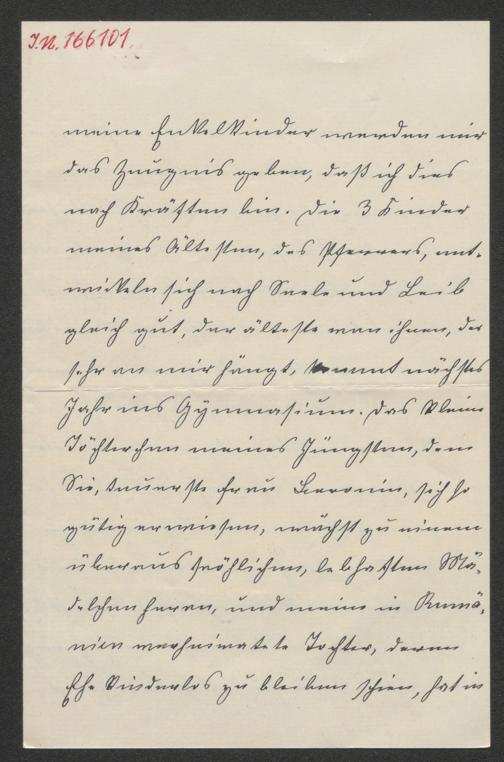 I.N. 166101.
meine Enkelkinder werden mir
das Zeugnis geben, daß ich dies
nach Kräften bin. Die 3 Kinder
meines Ältesten, des Pfarrers, ent-
wickeln sich nach Seele und Leib
gleich gut, der älteste von ihnen, der
sehr an mir hängt, kommt nächstes
Jahr ins Gymnasium. Das kleine
Töchterchen meines Jüngsten, dem
Sie, teuerste Frau Baronin, sich so
gütig erwiesen, wächst zu einem
überaus fröhlichen, lebhaften Mä-
delchen heran, und meine in Rumä-
nien verheiratete Tochter, deren
Ehe kinderlos zu bleiben schien, hat in